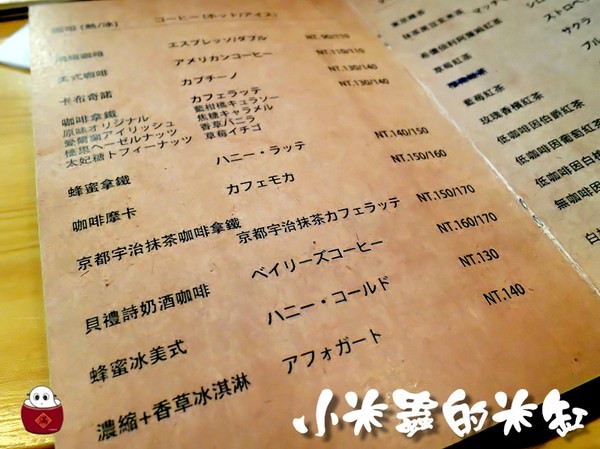 咖啡 (熱/冰) コーヒー(ホット/アイス)
濃縮咖啡 エスプレッソ/ダブル NT.90/110
美式咖啡 アメリカンコーヒー NT.110/110
卡布奇諾 カプチーノ NT.130/140
咖啡拿鐵 カフェラッテ NT.130/140
原味オリジナル 藍柑橘キュラソー
愛爾蘭アイリッシュ 焦糖キャラメル
榛果ヘーゼルナッツ 香草バニラ
太妃糖トフィーナッツ 草莓イチゴ
蜂蜜拿鐵 ハニー・ラッテ NT.140/150
咖啡摩卡 カフェモカ NT.150/160
京都宇治抹茶咖啡拿鐵 京都宇治抹茶カフェラッテ NT.150/170
貝禮詩奶酒咖啡 ベイリーズコーヒー NT.160/170
蜂蜜冰美式 ハニー・コールド NT.130
濃縮+香草冰淇淋 アフォガート NT.140
草莓紅茶
藍莓紅茶
玫瑰香檳紅茶
低咖啡因伯爵紅茶
低咖啡因葡萄紅茶
低咖啡因白桃
無咖啡因
サクラ
小米蟲的米缸